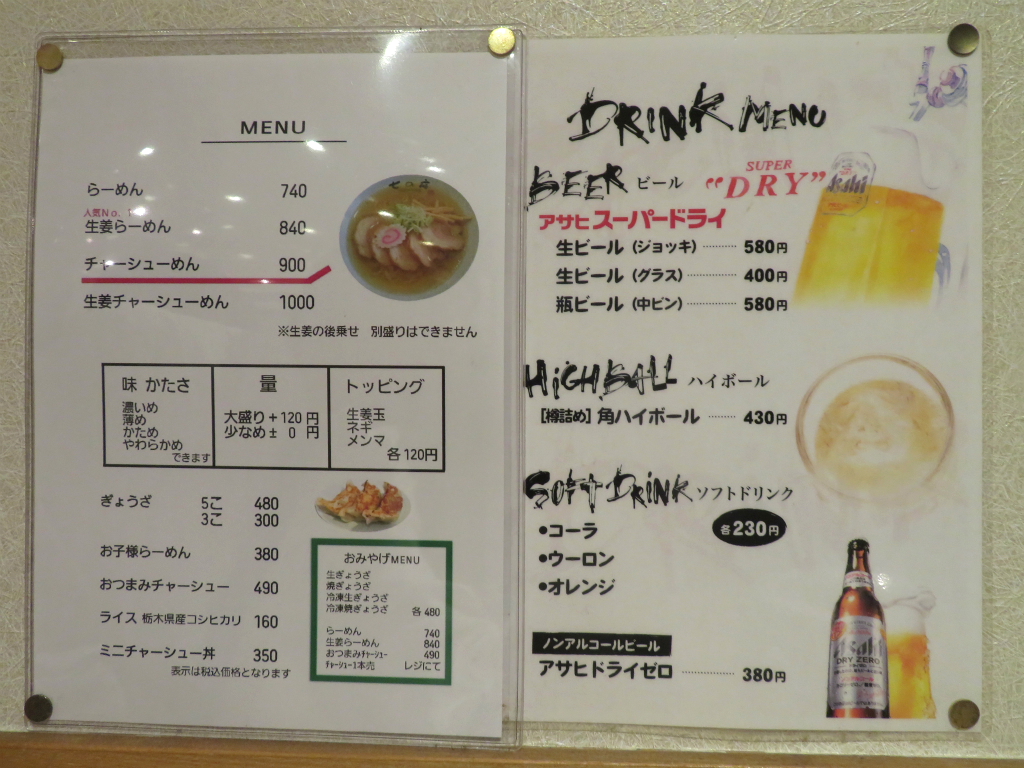 MENU
らーめん 740
人気No. 1
生姜らーめん 840
チャーシューめん 900
生姜チャーシューめん 1000
※生姜の後乗せ 別盛りはできません
味 かたさ
濃いめ
薄め
かため
やわらかめ
できます
量
大盛り+120円
少なめ± 0 円
トッピング
生姜玉
ネギ
メンマ
各120円
ぎょうざ 5こ 480
3こ 300
お子様らーめん 380
おつまみチャーシュー 490
ライス 栃木県産コシヒカリ 160
ミニチャーシュー丼 350
表示は税込価格となります
おみやげMENU
生ぎょうざ
焼ぎょうざ
冷凍生ぎょうざ
冷凍焼ぎょうざ 各480
らーめん 740
生姜らーめん 840
おつまみチャーシュー 490
チャーシュー1本売 レジにて
DRINK MENU
BEER ビール
SUPER
"DRY"
Asahi
アサヒスーパードライ
生ビール(ジョッキ) 580円
生ビール(グラス) 400円
瓶ビール(中ビン) 580円
HIGHBALL ハイボール
[樽詰め]角ハイボール 430円
SOFT DRINK ソフトドリンク
各230円
•コーラ
•ウーロン
•オレンジ
ノンアルコールビール
アサヒドライゼロ 380円
Asahi
DRY ZERO